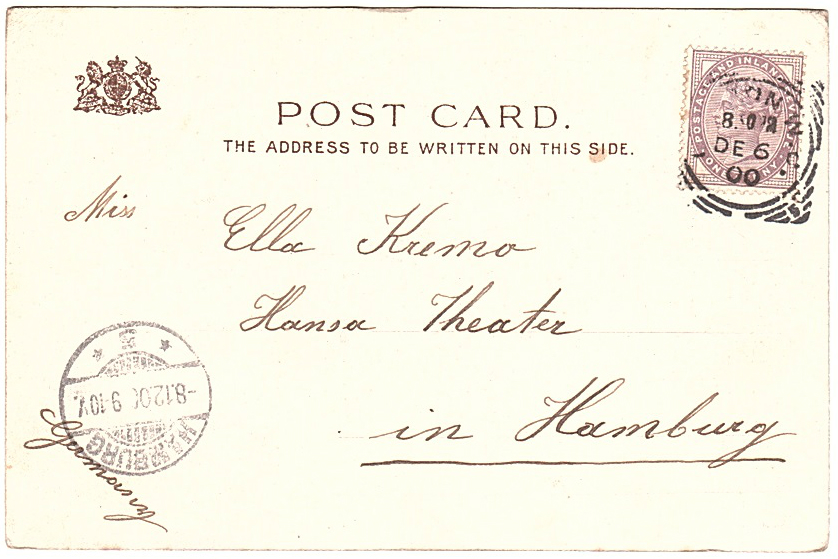 POST CARD.
THE ADDRESS TO BE WRITTEN ON THIS SIDE.
POSTAGE AND INLAND
DE 6
00
Miss
Ella Kremo
Hansa Theater
in Hamburg
Germany
HAMBURG
-8.12.00 9-10V.